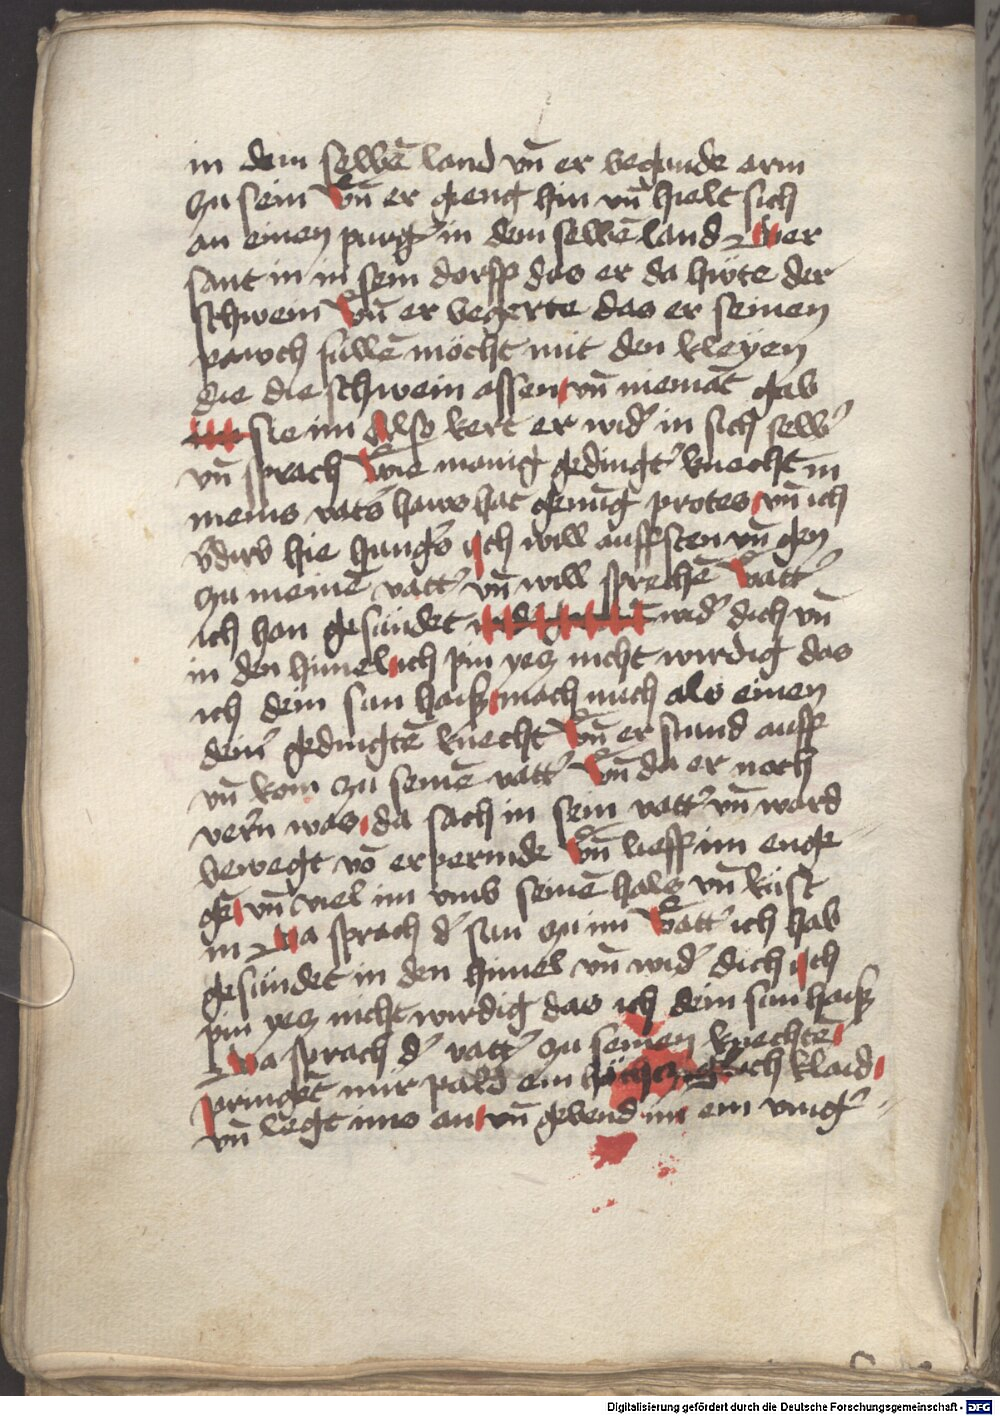 in dem selbē land vn̄ er begunde arm
zu sein Vn̄ er gieng hin vn̄ hielt sich
an einen purg' in dem selbē land Der
sant in in sein dorff das er da hüte der
schwein Vn̄ er begerte das er seinen
pawch füllē möcht mit den kleÿen
die die schwein assen vn̄ niemāt gab
sie im Also kert er wid' in sich selb'
vn̄ sprach Wie manig gedingt' knecht in
meins vat's haws hat genūg protes vn̄ ich
v'dirb hie hung's Ich will auffsten vn̄ gen
zu meinē vatt' vn̄ will sprechē Vatt'
ich han gesündet wid' dich vn̄
in den himel ich pin yecz nicht wirdig das
ich dein sun haiß mach mich als einen
dein' gedingtē knecht Vn̄ er stund auff
vn̄ kom zu seinē vatt' Vn̄ da er noch
verr'n was da sach in sein vatt' vn̄ ward
bewegt vō erpermde Vn̄ lieff im engē
gē vn̄ viel im vmb seinē hals vn̄ küst
in Da sprach d' sun zu im Vatt' ich hab
gesündet in den himel vn̄ wid' dich Ich
pin yecz nicht wirdig das ich dein sun haiß
Da sprach d' vatt' zu seinen knechtē
pringet mir pald ein klaid
vn̄ legt ims an vn̄ gebend im ein ving'
Digitalisierung gefördert durch die Deutsche Forschungsgemeinschaft - DFG